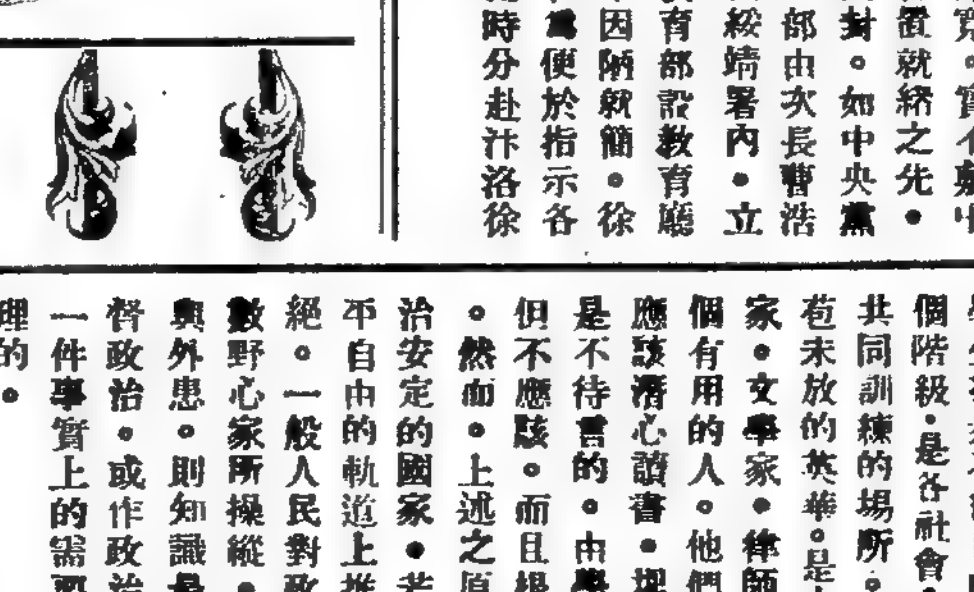 置就緒之先。
封。如中央黨
部由次長曹浩
綏靖署內。立
育部設教育廳
因陋就簡。徐
為便於指示各
時分赴汴洛徐
個階級。是各社會
共同訓練的場所。
苞未放的英華。是
家。文學家。律師
個有用的人。他們
應該潛心讀書。
是不待言的。由學
但不應該。而且
。然而。上述之原
治安定的國家。若
不自由的軌道上推
絕。一般人民對政
數野心家所操縱。
與外患。則知識
督政治。或作政治
一件事實上的需要
理的。